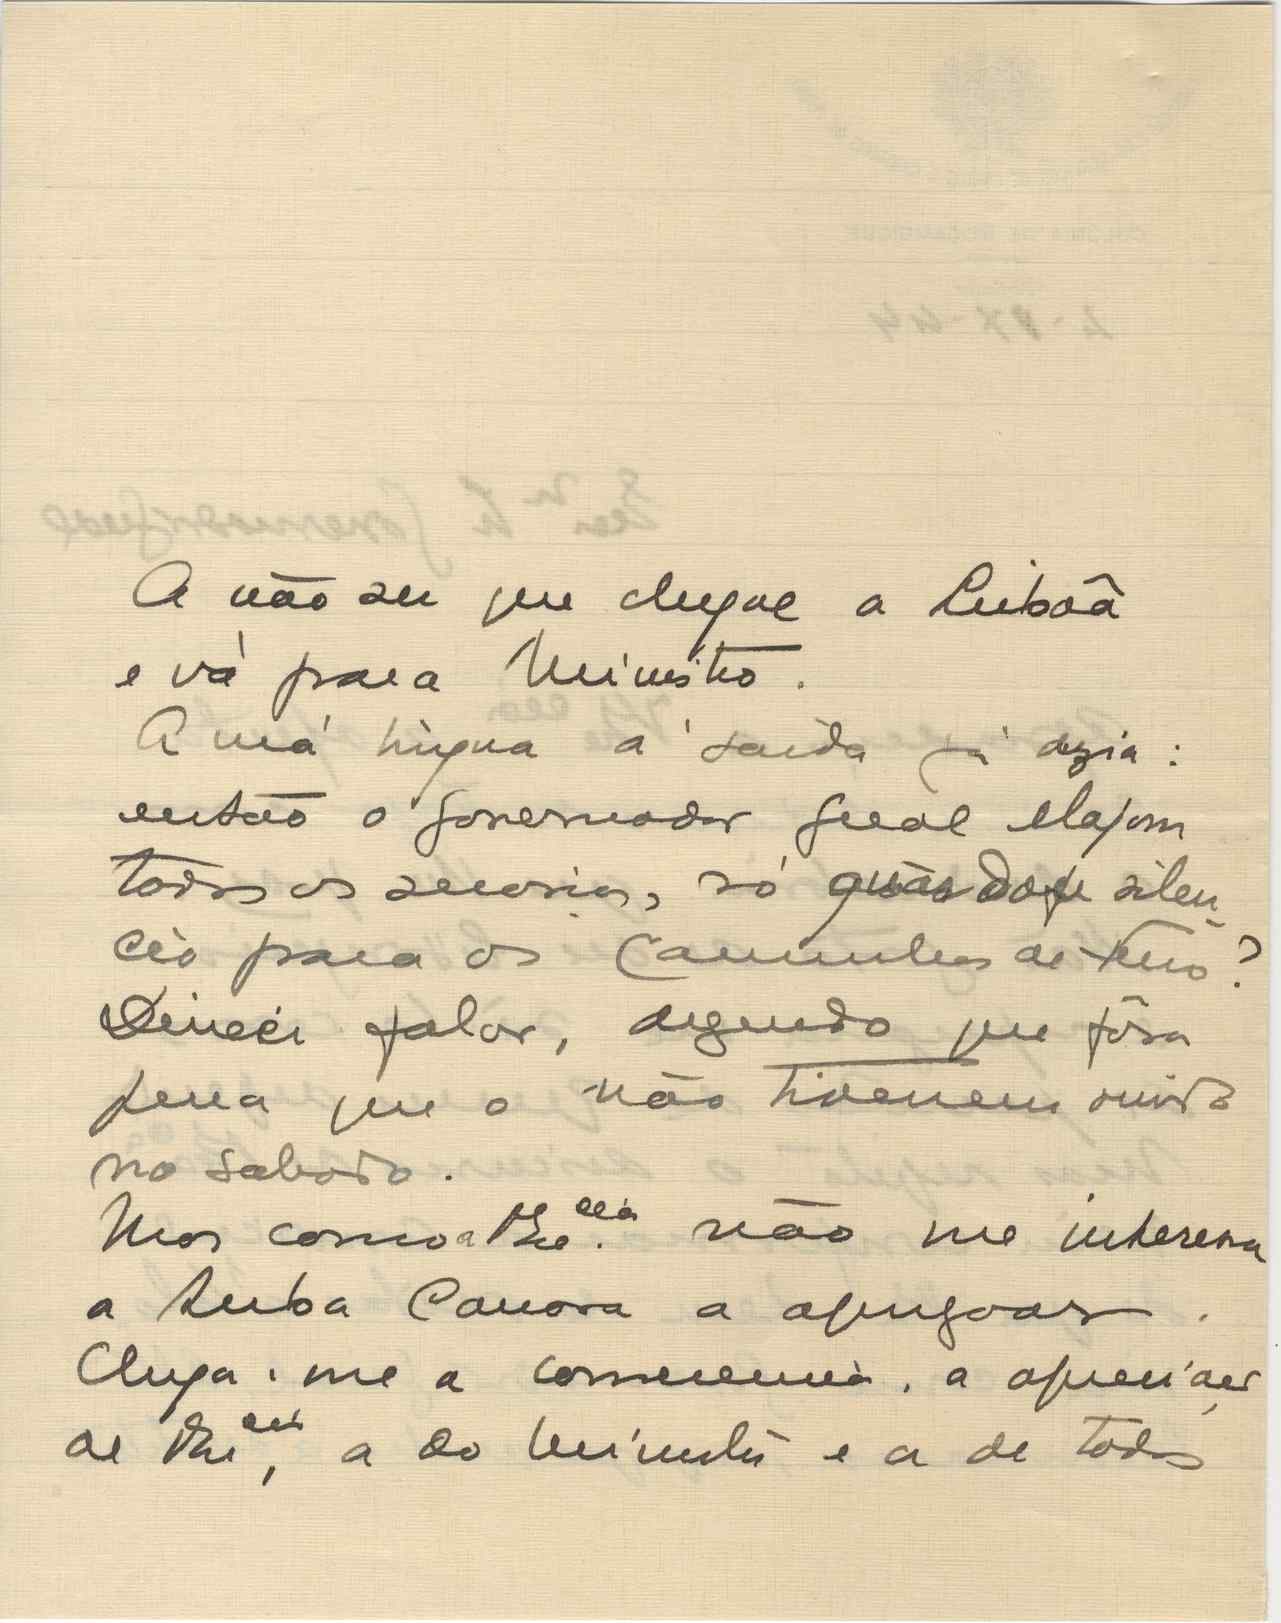 A não ser que chegue a Lisbôa
e vá para Ministro.
A má lingua á saida já dizia:
então o Governador Geral elogiou
todos os serviços, só guardou silen-
cio para os Caminhos de Ferro?
Deixei falar, dizendo que fôra
pena que o não tivessem ouvido
no sabado.
Mas como a V. Ex.cia não me interessa
a tuba Canora a apregoar.
Chega-me a consciencia, a apreciar
de V. Ex.cia, a do Ministro e a de todos